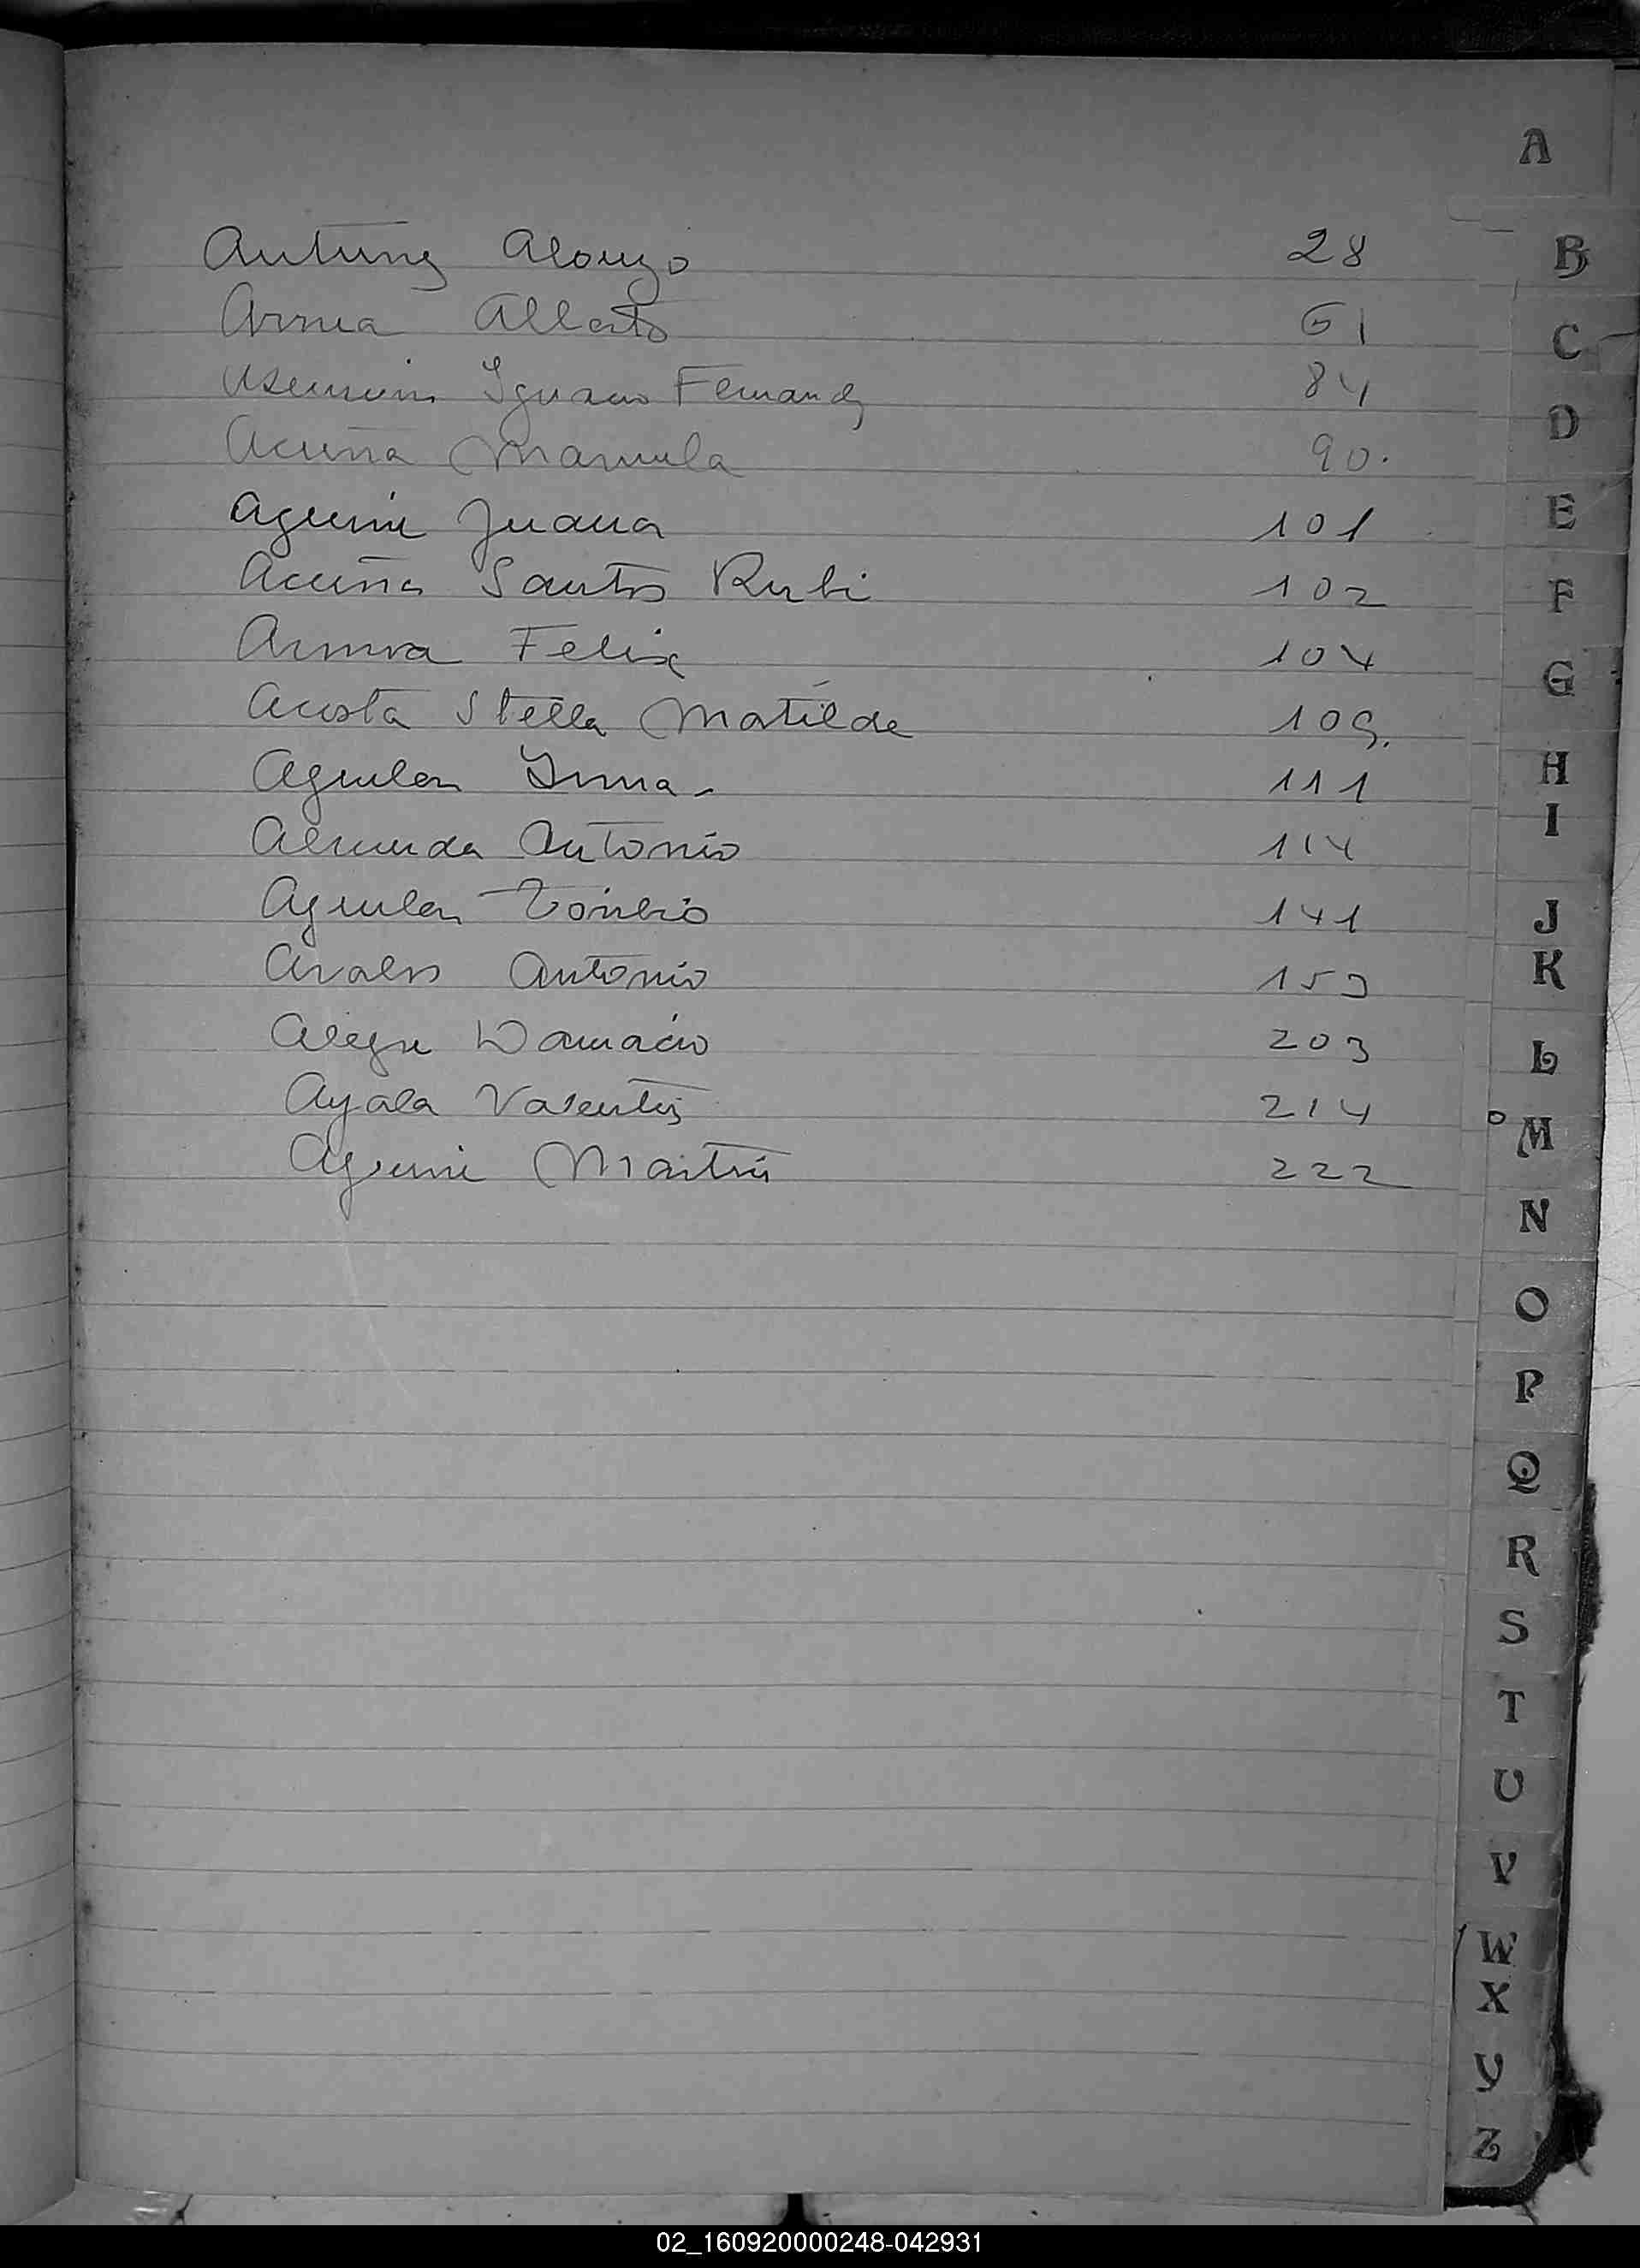 A
Antunez Alonzo 28
Alberto 61
Ignacio Fernandez 84
Acuña Manuela 90.
Aguirre Juana 101
Acuña Santos Rubi 102
Felix 104
Acosta Stella Matilde 109.
Aguilar Irma - 111
Antonio 114
Aguilar Toribio 141
Avalos Antonio 153
Alegre Damacio 203
Ayala Valentin 214
Aguirre Martin 222
B
C
D
E
F
G
H
I
J
K
L
M
N
O
P
Q
R
S
T
U
V
W
X
Y
Z
02_160920000248-042931